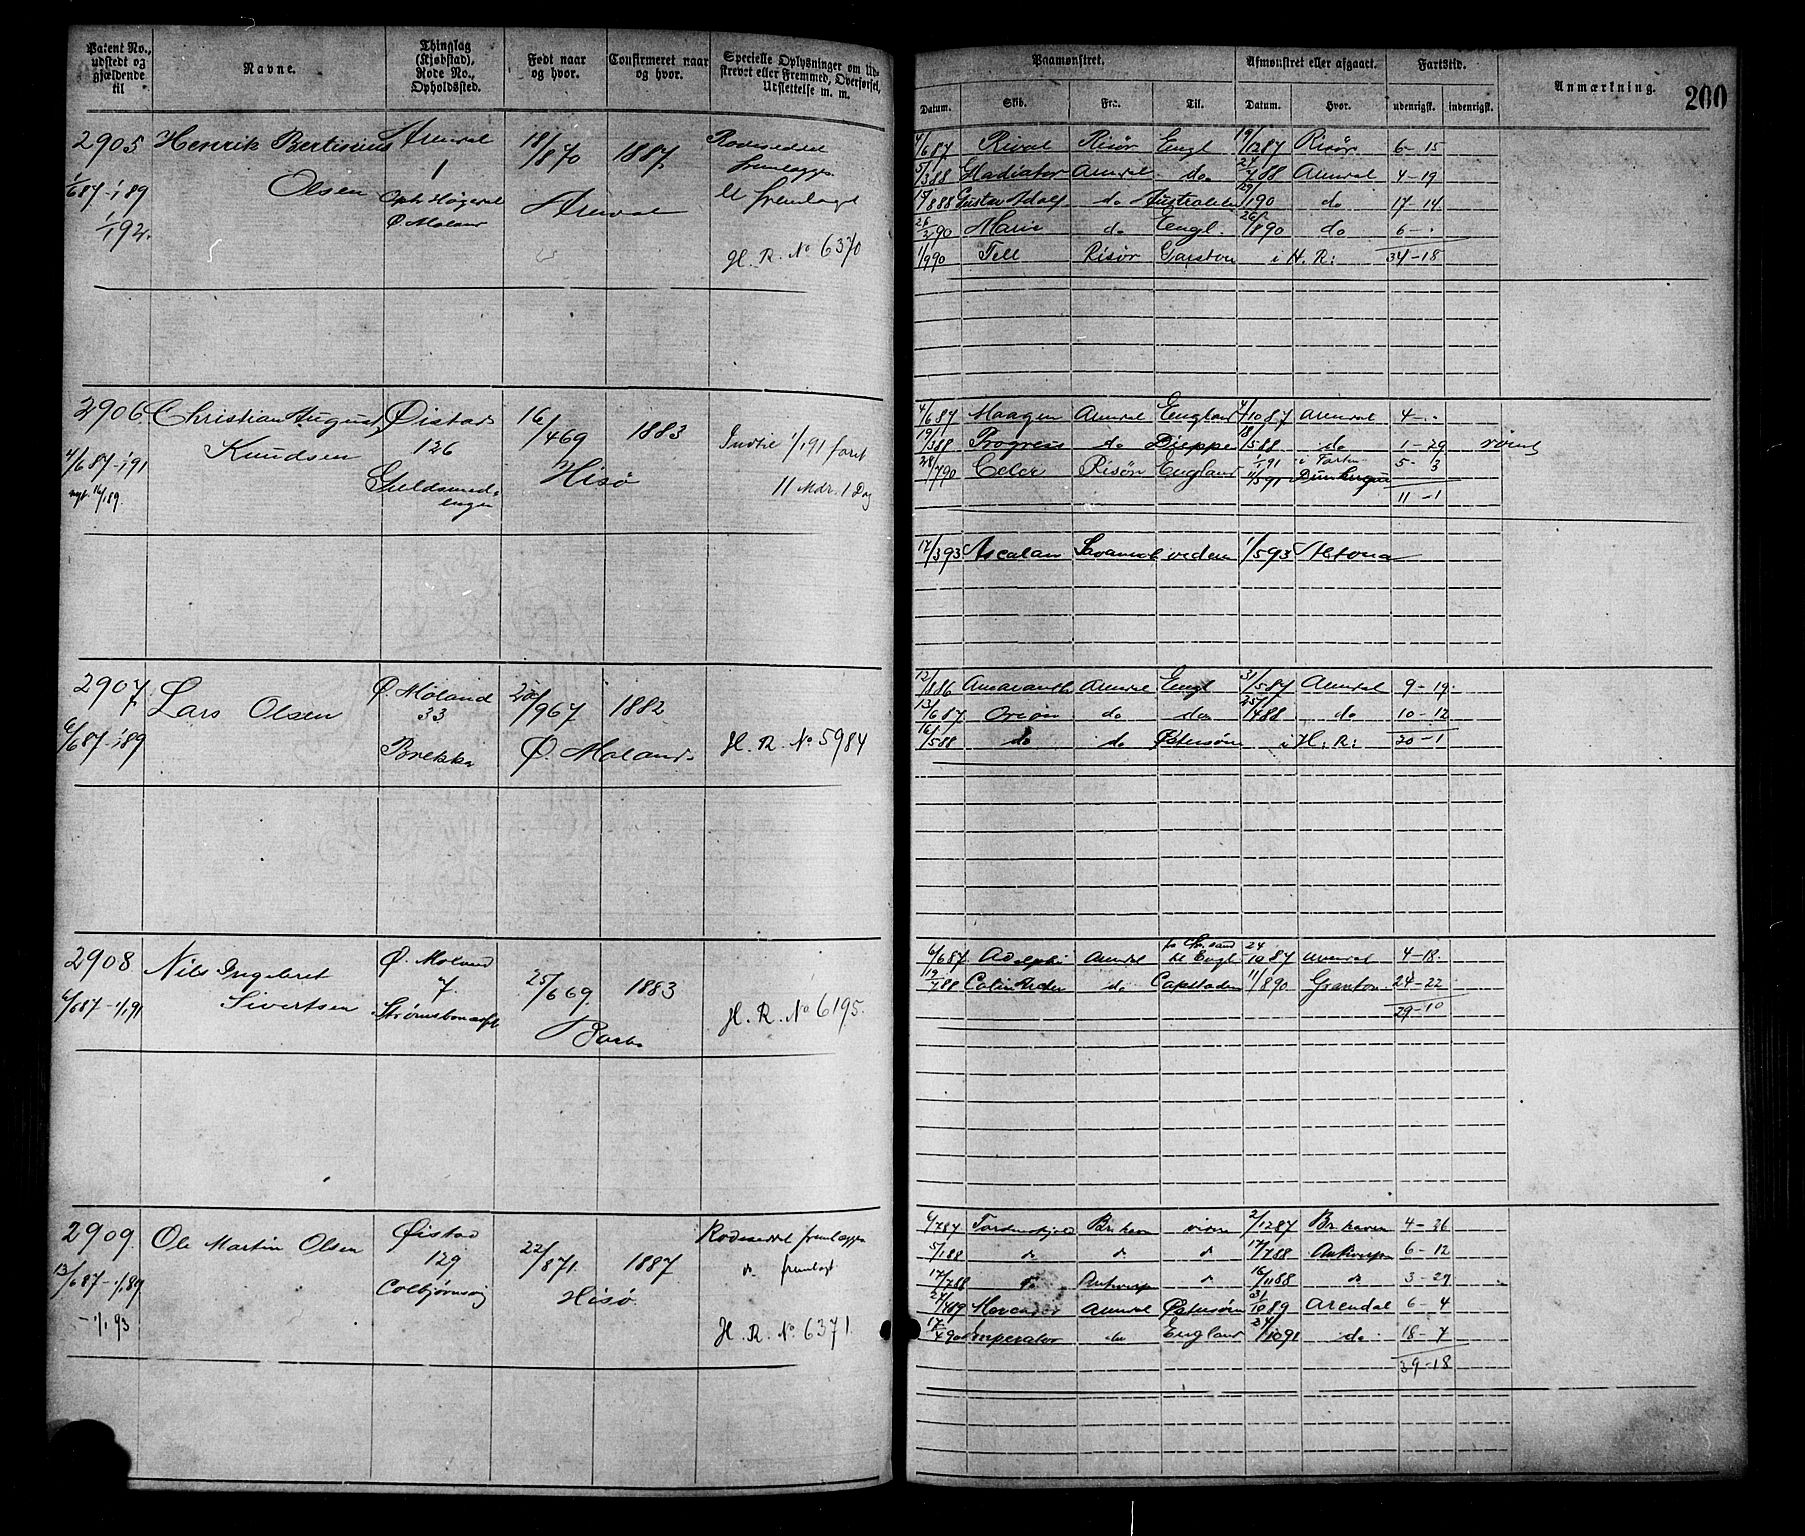 Patent No., udstedt og gjældende til
Navne.
Thinglag (Kjøbstad), Rode No., Opholdssted.
Født naar og hvor.
Confirmeret naar og hvor.
Specielle Oplysninger om Udskrevet eller Fremmed, Overførsel, Udslettelse m. m.
Paamønstret.
Afmønstret eller afgaaet.
Fartstid.
Anmærkning.
200
Datum.
Skib.
Fra.
Til.
Datum.
Hvor.
udenrigsk.
indenrigsk.
2905 Henrik Bertinius Arendal 18/8 70 1887 Rodeseddel
Olsen 1 fremlægges
1/6 87 - 1/1 89 Høgevol Arendal fremlagt
1/1 92. Ø Moland H. R. No 6370
4/6 87 Rival Risør Engl 19/12 87 Risør 6 - 15
5/3 88 Gladiator Arendal do 24/7 88 Arendal 4 - 19
15/8 88 Gustav Adolf do Australien 29/1 90 do 17 - 14
26/2 90 Marie do Engl. 26/8 90 do 6 - .
1/9 90 Tell Risør Garston i H. R: 34 - 18
2906 Christian August Øistad 16/4 69 1883 Indtil 1/1 91 faret
Knudsen 126 Hisø 11 Mdr. 1 Dag
4/6 87 - 1/1 91 Guldsmed-
engen
4/6 87 Maagen Arendal England 4/10 87 Arendal 4 - .
19/3 88 Progress do Dieppe 18/5 88 do 1 - 29 rømt
28/7 90 Celer Risør England 1/1 91 i Farten 5 - 3
Dunkerque
11 - 1
17/3 93 Ascalon 1/5 93 Altona
2907 Lars Olsen Ø. Moland 20/9 67 1882
33
6/6 87 - 1/1 89 Brekka Ø. Moland. H. R. No 5984
12/8 86 Amaranth Arendal Engl 31/5 87 Arendal 9 - 19.
13/6 87 Orion do do 25/4 88 do 10 - 12
16/5 88 do do Østersøen i H: R: 20 - 1
2908 Nils Ingebret Ø. Moland 25/6 69. 1883
7.
6/6 87 - 1/1 91 Sivertsen Barbo H. R. No 6195.
6/6 87 Adelphi Arendal til Engl 24/10 87 Arendal 4 - 18.
19/1 88 do Capstaden 11/8 90 Granton 24 - 22
29 - 10
2909. Ole Martin Olsen Øistad 22/8 71. 1887 Rodeseddel fremlægges
129 do fremlagt
13/6 87 - 1/1 89 Colbjørnsvig Hisø
- 1/1 93 H. R. No 6371.
6/7 87 Tordenskjold Br.haven 2/12 87 Br.haven 4 - 26
5/1 88 do do do 17/7 88 Antwerpen 6 - 12
17/7 88 do Antwerp do 16/11 88 do 3 - 29
27/4 89 Arendal Østersøen 31/10 89 Arendal 6 - 4
17/4 90 Imperator do England 24/10 91 do 18 - 7
39 - 18